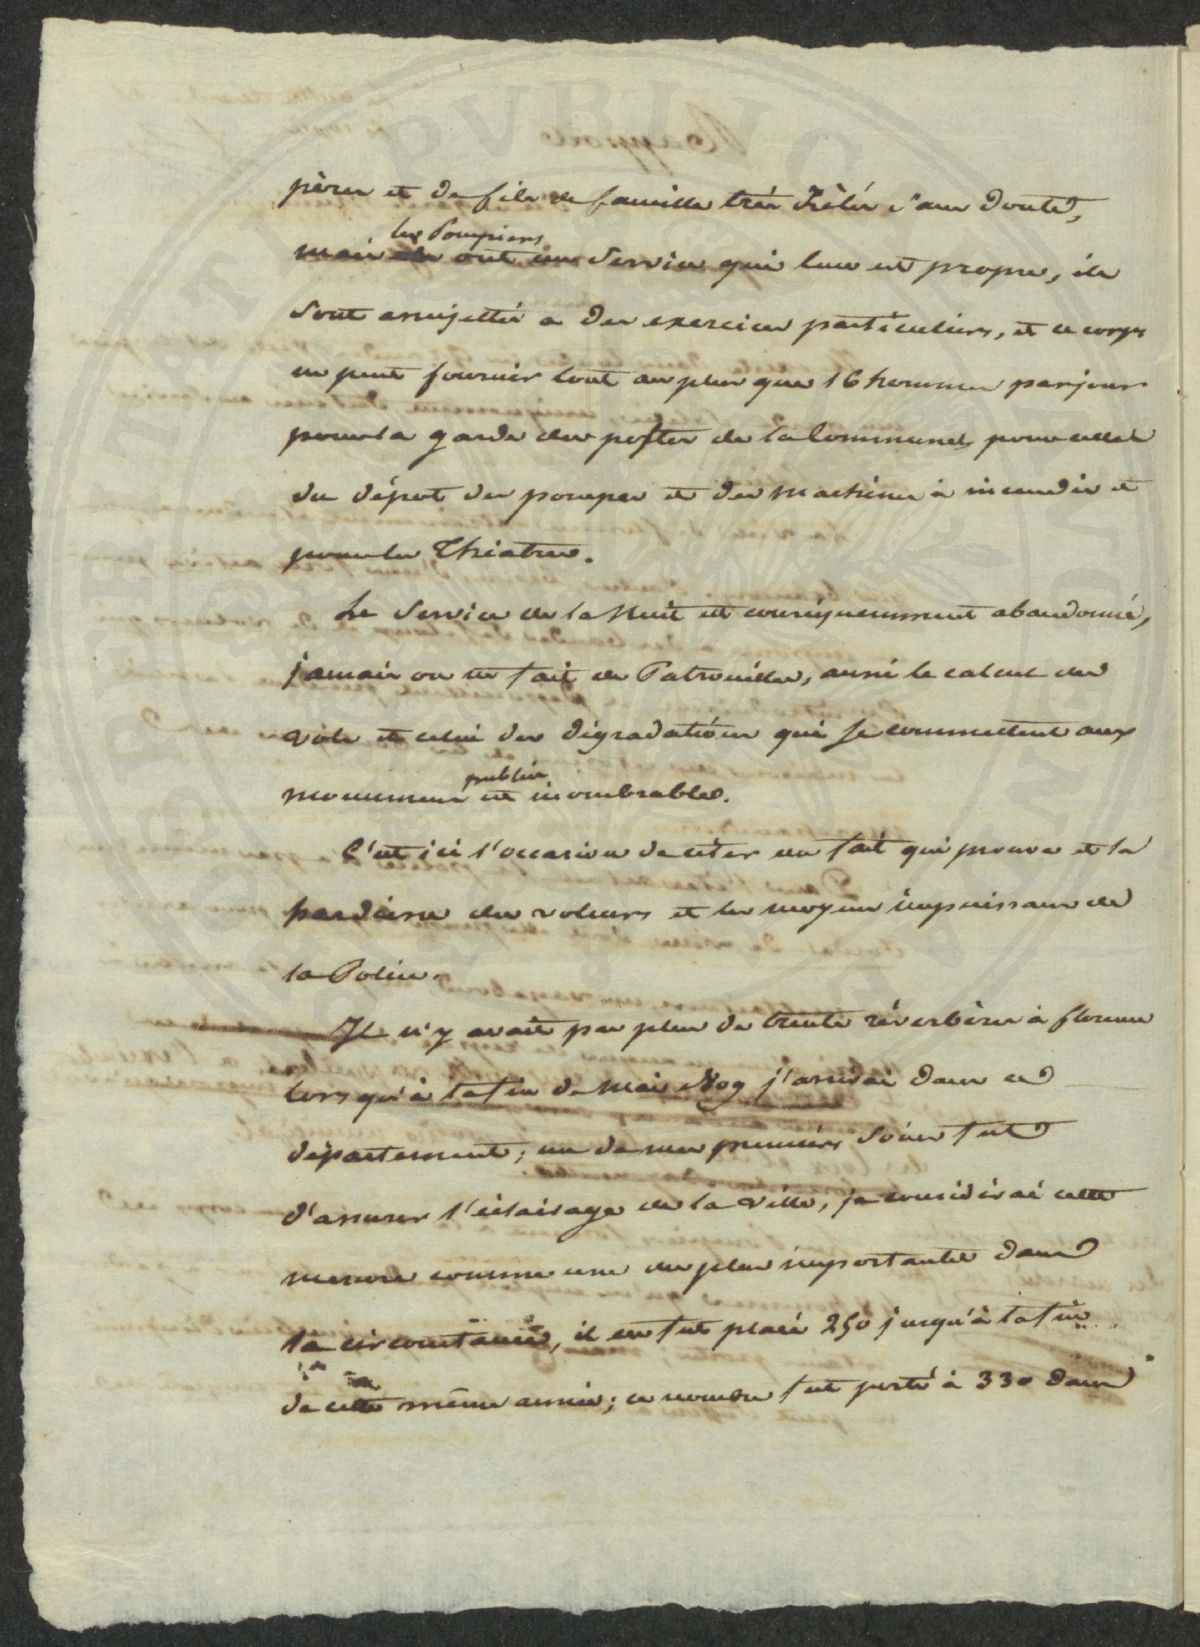 pères et de fils de famille très zèlés sans doute,
mais les Pompiers ont un Service qui leur est propre, ils
sont assujettis a des exercices particuliers, et ce corps
ne peut fournir tout au plus que 16 hommes par jour
pour la garde des postes de la Commune, pour celle
du dépot des pompes et des machines à incendie et
pour les Théatres.
Le Service de la Nuit est conséquemment abandonné,
jamais on ne fait de Patrouilles, aussi le calcul des
vols et celui des dégradations qui se commettent aux
monumens publics est inombrable.
C'est ici l'occasion de citer un fait qui prouve et la
hardiesse des voleurs et les moyens impuissans de
la Police.
Il n'y avait pas plus de trente réverbères à florence
lorsqu'à la fin de Mai 1809 j'arrivai dans ce
département; un de mes premiers soins fut
d'assurer l'éclairage de la ville, je considérai cette
mesure comme une des plus importantes dans
la circonstance, il en fut placé 250 jusqu'à la fin
de cette même année; ce nombre fut porté à 330 dans